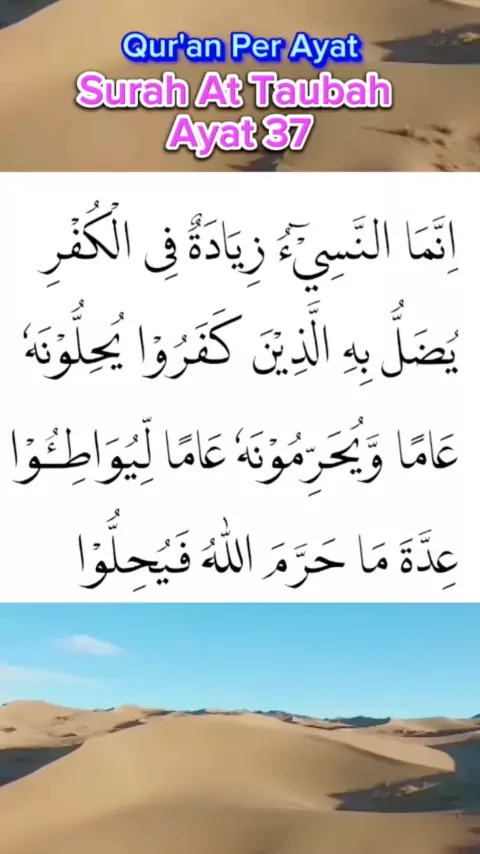 Qur'an Per Ayat
Surah At Taubah
Ayat 37
اِنَّمَا النَّسِيْۤءُ زِيَادَةٌ فِى الْكُفْرِ
يُضَلُّ بِهِ الَّذِيْنَ كَفَرُوْا يُحِلُّوْنَهٗ
عَامًا وَّيُحَرِّمُوْنَهٗ عَامًا لِّيُوَاطِـُٔوْا
عِدَّةَ مَا حَرَّمَ اللّٰهُ فَيُحِلُّوْا